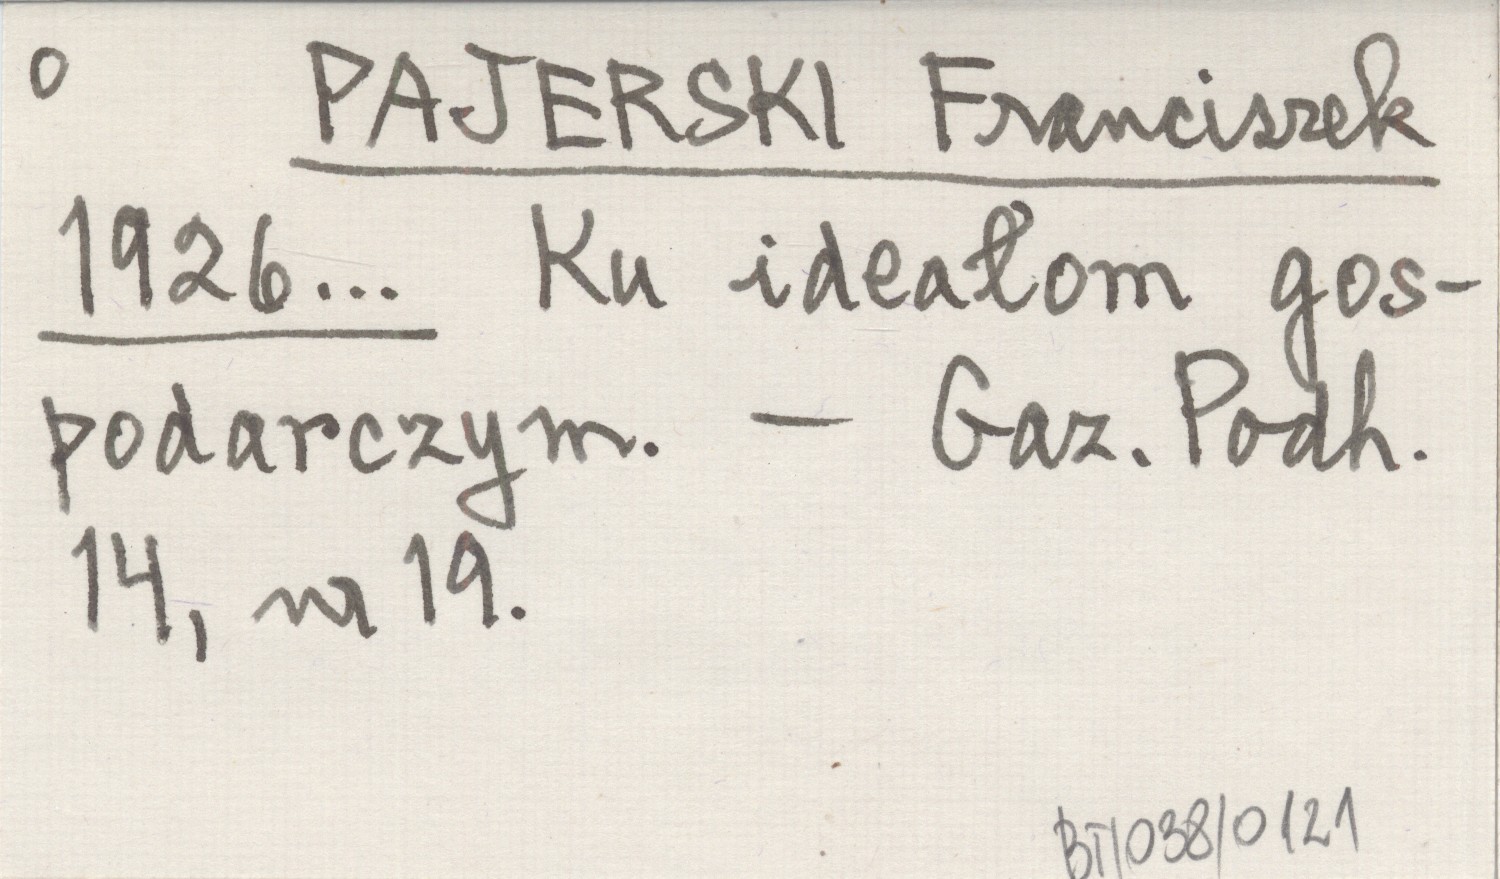 0 PAJERSKI Franciszek
1926... Ku ideałom gos-
podarczym. – Gaz. Podh.
14, nr 19.
BT/038/0/21